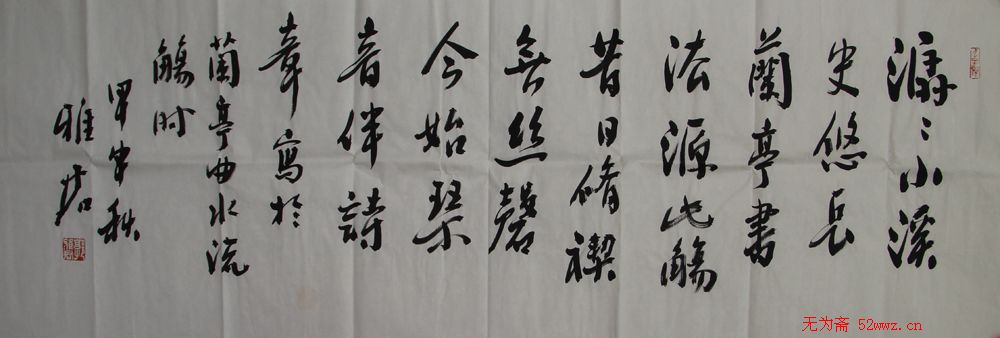 潺〻小溪
史悠長
蘭亭書
法源此觴
昔日脩禊
無絲磬
今始琴
音伴詩
章寫於
蘭亭曲水流
觴时
甲申秋
雅君
无为斋 52wwz.cn